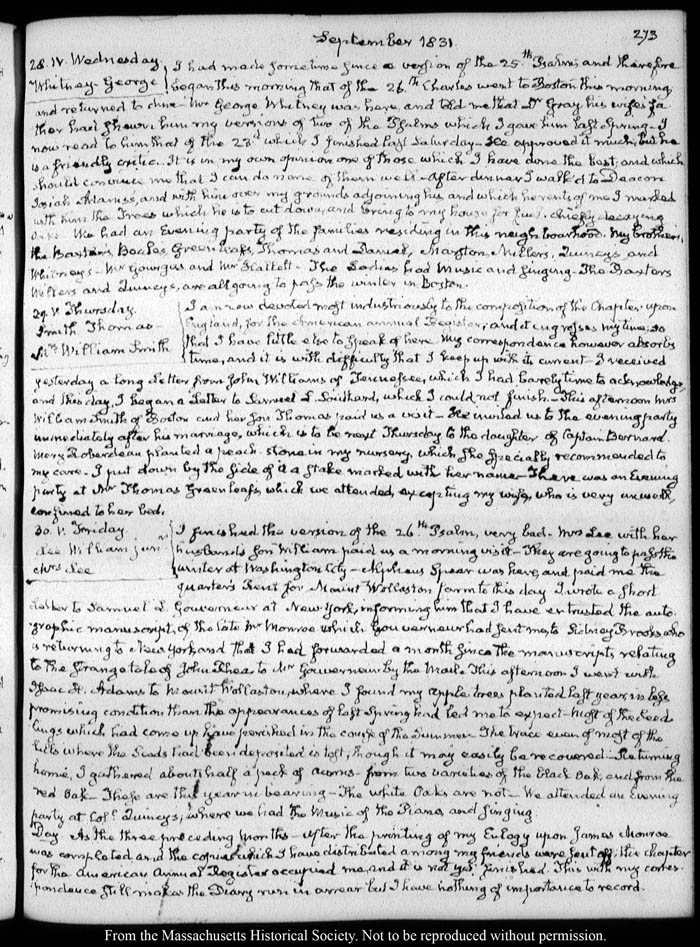 September 1831
273
28. IV. Wednesday.
Whitney. George
I had made sometime since a version of the 25th Psalm, and therefore
began this morning that of the 26th Charles went to Boston this morning,
and returned to dine. Mr George Whitney was here, and told me that Dr Gray, his wife's fa
ther had shewn him my versions of two of the Psalms which I gave him last Spring. I
now read to him that of the 23d which I finished last Saturday. He approved it much, but he
is a friendly critic. It is in my own opinion one of those which I have done the best, and which
should convince me that I can do none of them well. After dinner I walk'd to Deacon
and with him over my grounds adjoining his and which he rents of me. I marked
with him the Trees which he is to cut down, and bring to my house for fuel, chiefly decaying
We had an Evening party of the families residing in this neighbourhood. My brother's,
the Baxters, Beales, Greenleafs, Thomas and Daniel, Marston, Millers, Quincys and
Whitneys. Mr Gourgas and Mr The Ladies had Music and Singing. The Baxters
Millers and Quincys, are all going to pass the winter in Boston.
29. V. Thursday.
Smith Thomas
Mrs William Smith
I am now devoted most industriously to the composition of the Chapter upon
England, for the American annual Register; and it engrosses my time, so
that I have little else to speak of here. My correspondence however absorbs
time, and it is with difficulty that I keep up with its current. I received
yesterday a long Letter from John Williams of Tennessee, which I had barely time to acknowledge,
and this day I began a Letter to Samuel L. Southard, which I could not finish. This afternoon Mrs
William Smith of Boston and her Son Thomas paid us a visit. He invited us to the evening party
immediately after his marriage, which is to be next Thursday to the daughter of Captain Bernard.
Mary Roberdeau planted a peach-stone in my nursery, which she specially recommended to
my care. I put down by the side of it a stake marked with her name. There was an Evening
party at Mr Thomas Greenleaf's, which we attended, excepting my wife, who is very unwell,
confined to her bed.
30. V. Friday.
Lee William junr
Mrs Lee
I finished the version of the 26th Psalm, very bad. Mrs Lee with her
husband's Son William paid us a morning visit. They are going to pass the
winter at Washington City. Alpheus Spear was here, and paid me the
quarter's Rent for Mount Wollaston farm to this day. I wrote a short
Letter to Samuel L. Gouverneur at New York, informing him that I have entrusted the auto-
graphic manuscript, of the late Mr Monroe which Gouverneur had sent me, to Sidney Brooks who
is returning to New York, and that I had forwarded a month since the manuscripts relating
to the strange tale of John Rhea, to Mr Gouverneur by the Mail. This afternoon I went with
Isaac H. Adams to Mount Wollaston, where I found my apple trees planted last year, in less
promising condition than the appearances of last Spring had led me to expect. Most of the seed
lings which had come up have perished in the course of the Summer. The trace even of most of the
hills where the Seeds had been deposited is lost, though it may easily be recovered. Returning
home, I gathered about half a peck of acorns from two varieties of the Black Oak, and from the
red Oak. These are this year in bearing. The white Oaks are not. We attended an Evening
party at Coll Quincy's; where we had the Music of the Piano, and singing.
Day. As the three preceding months. After the printing of my Eulogy upon James Monroe
was completed and the copies which I have distributed among my friends were sent off, the chapter
for the American Annual Register occupied me, and it is not yet finished. This with my corres-
pondence still makes the Diary run in arrear but I have nothing of importance to record.
From the Massachusetts Historical Society. Not to be reproduced without permission.